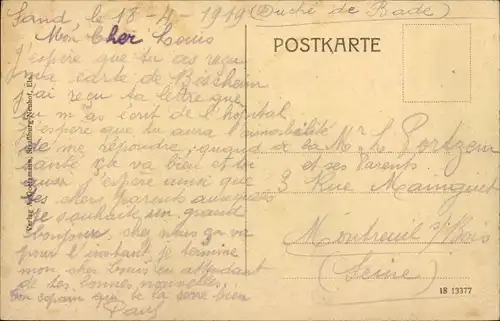 Sand, le 18 - 4 - 1919 (Duché de Bade)
Mon Cher Louis
J'espère que tu as reçu
ma carte de
J'ai reçu ta lettre que
tu m'as écrit de l'hôpital
J'espère que tu aura l'amabilité
de me répondre, quand à la
santé va bien et toi
j'espère ainsi que
tes chers parents auxquels
je souhaite un grand
bonjour, chez nous ça va
pour l'instant je termine
mon cher Louis en attendant
de tes bonnes nouvelles,
ton copain que te la serre bien
Paul
POSTKARTE
Mr L Portzem
et ses Parents
3 Rue
Montreuil s/Bois
(Seine)
Straßburg-Neuhof, Els.
18 13377